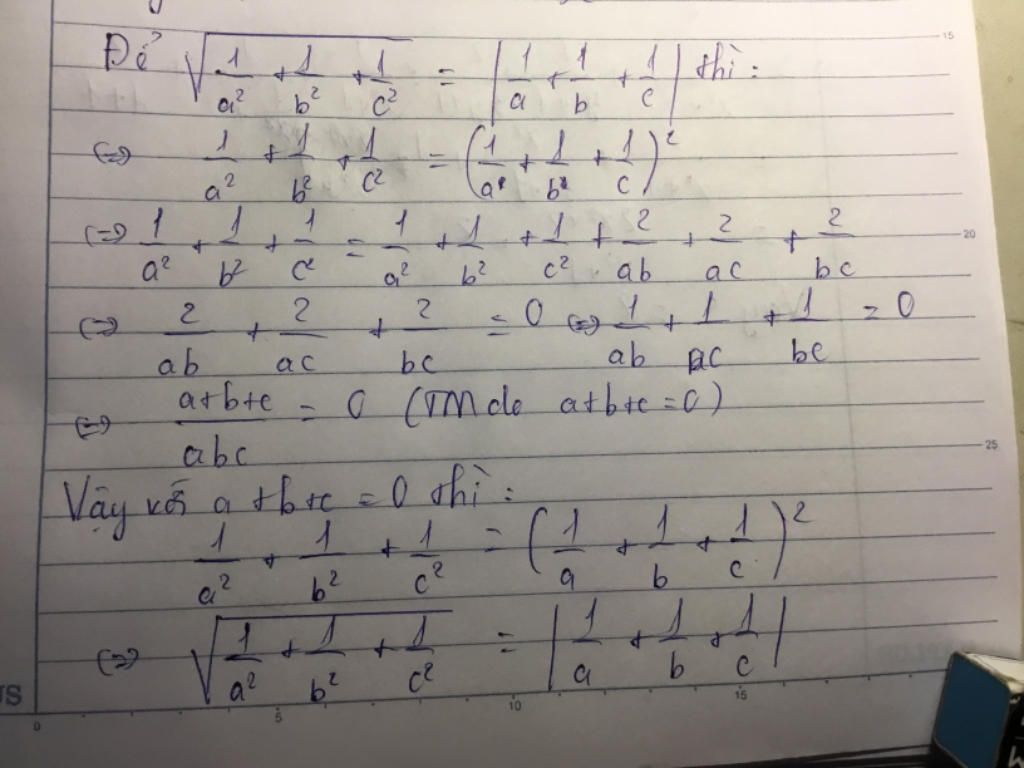 Để √(1/a² + 1/b² + 1/c²) = |1/a + 1/b + 1/c| thì:
⇔ 1/a² + 1/b² + 1/c² = (1/a + 1/b + 1/c)²
⇔ 1/a² + 1/b² + 1/c² = 1/a² + 1/b² + 1/c² + 2/ab + 2/ac + 2/bc
⇔ 2/ab + 2/ac + 2/bc = 0 ⇔ 1/ab + 1/ac + 1/bc = 0
⇔ (a+b+c)/abc = 0 (TM do a+b+c=0)
Vậy với a+b+c = 0 thì:
1/a² + 1/b² + 1/c² = (1/a + 1/b + 1/c)²
⇔ √(1/a² + 1/b² + 1/c²) = |1/a + 1/b + 1/c|
15
20
25
0 5 10 15